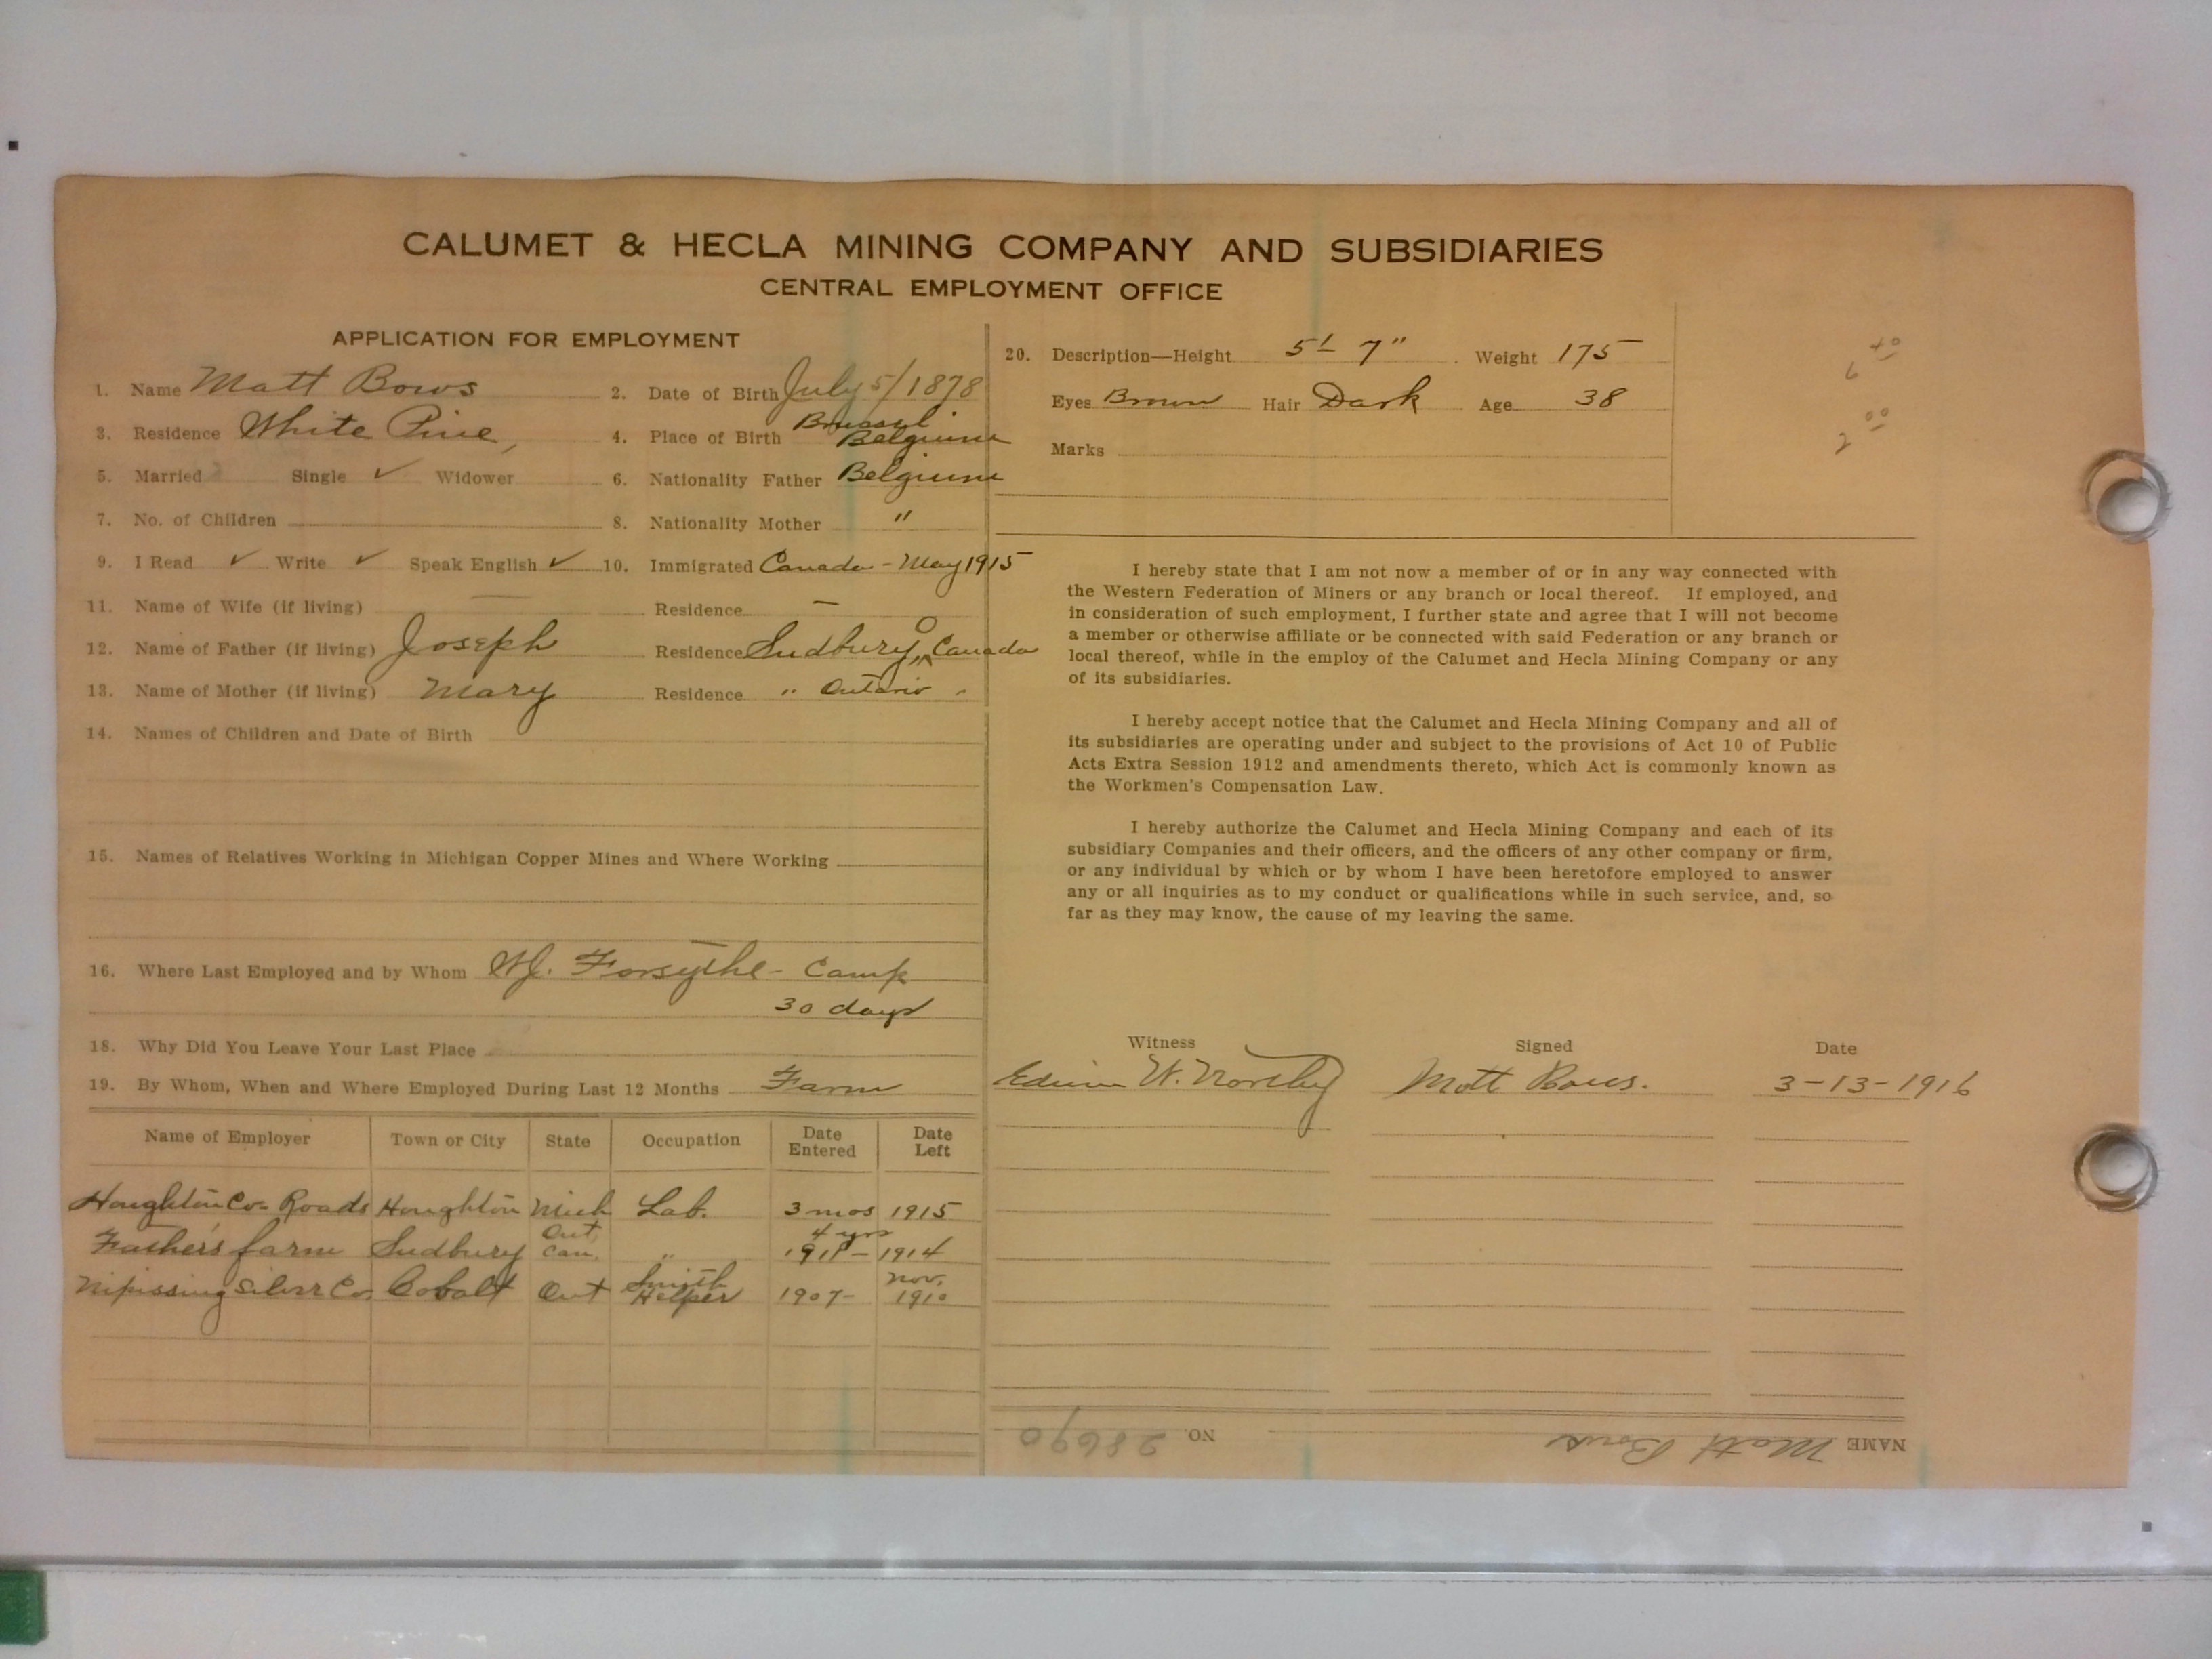 CALUMET & HECLA MINING COMPANY AND SUBSIDIARIES
CENTRAL EMPLOYMENT OFFICE
APPLICATION FOR EMPLOYMENT
1. Name Matt Bows 2. Date of Birth July 5/1878
3. Residence White Pine, 4. Place of Birth Brussul Belgium
5. Married Single ✓ Widower 6. Nationality Father Belgium
7. No. of Children 8. Nationality Mother "
9. I Read ✓ Write ✓ Speak English ✓ 10. Immigrated Canada - May 1915
11. Name of Wife (if living) — Residence —
12. Name of Father (if living) Joseph Residence Sudbury, O Canada
13. Name of Mother (if living) Mary Residence " Ontario "
14. Names of Children and Date of Birth
15. Names of Relatives Working in Michigan Copper Mines and Where Working —
16. Where Last Employed and by Whom Forsythe - Camp
30 days
18. Why Did You Leave Your Last Place
19. By Whom, When and Where Employed During Last 12 Months Farm
Name of Employer Town or City State Occupation Date Entered Date Left
Houghton Co. Roads Houghton Mich Lab. 3 mos 1915
Father's farm Sudbury Ont Can. " 4 yrs 1911 - 1914
Nipissing Silver Co. Cobalt Ont Smith Helper 1907- Nov. 1910
20. Description—Height 5' 7" Weight 175
Eyes Brown Hair Dark Age 38
Marks
6 40
2 00
I hereby state that I am not now a member of or in any way connected with
the Western Federation of Miners or any branch or local thereof. If employed, and
in consideration of such employment, I further state and agree that I will not become
a member or otherwise affiliate or be connected with said Federation or any branch or
local thereof, while in the employ of the Calumet and Hecla Mining Company or any
of its subsidiaries.
I hereby accept notice that the Calumet and Hecla Mining Company and all of
its subsidiaries are operating under and subject to the provisions of Act 10 of Public
Acts Extra Session 1912 and amendments thereto, which Act is commonly known as
the Workmen's Compensation Law.
I hereby authorize the Calumet and Hecla Mining Company and each of its
subsidiary Companies and their officers, and the officers of any other company or firm,
or any individual by which or by whom I have been heretofore employed to answer
any or all inquiries as to my conduct or qualifications while in such service, and, so
far as they may know, the cause of my leaving the same.
Witness Signed Date
Edwin W. Matt Bows. 3-13-1916
NAME Matt Bows NO. 28690